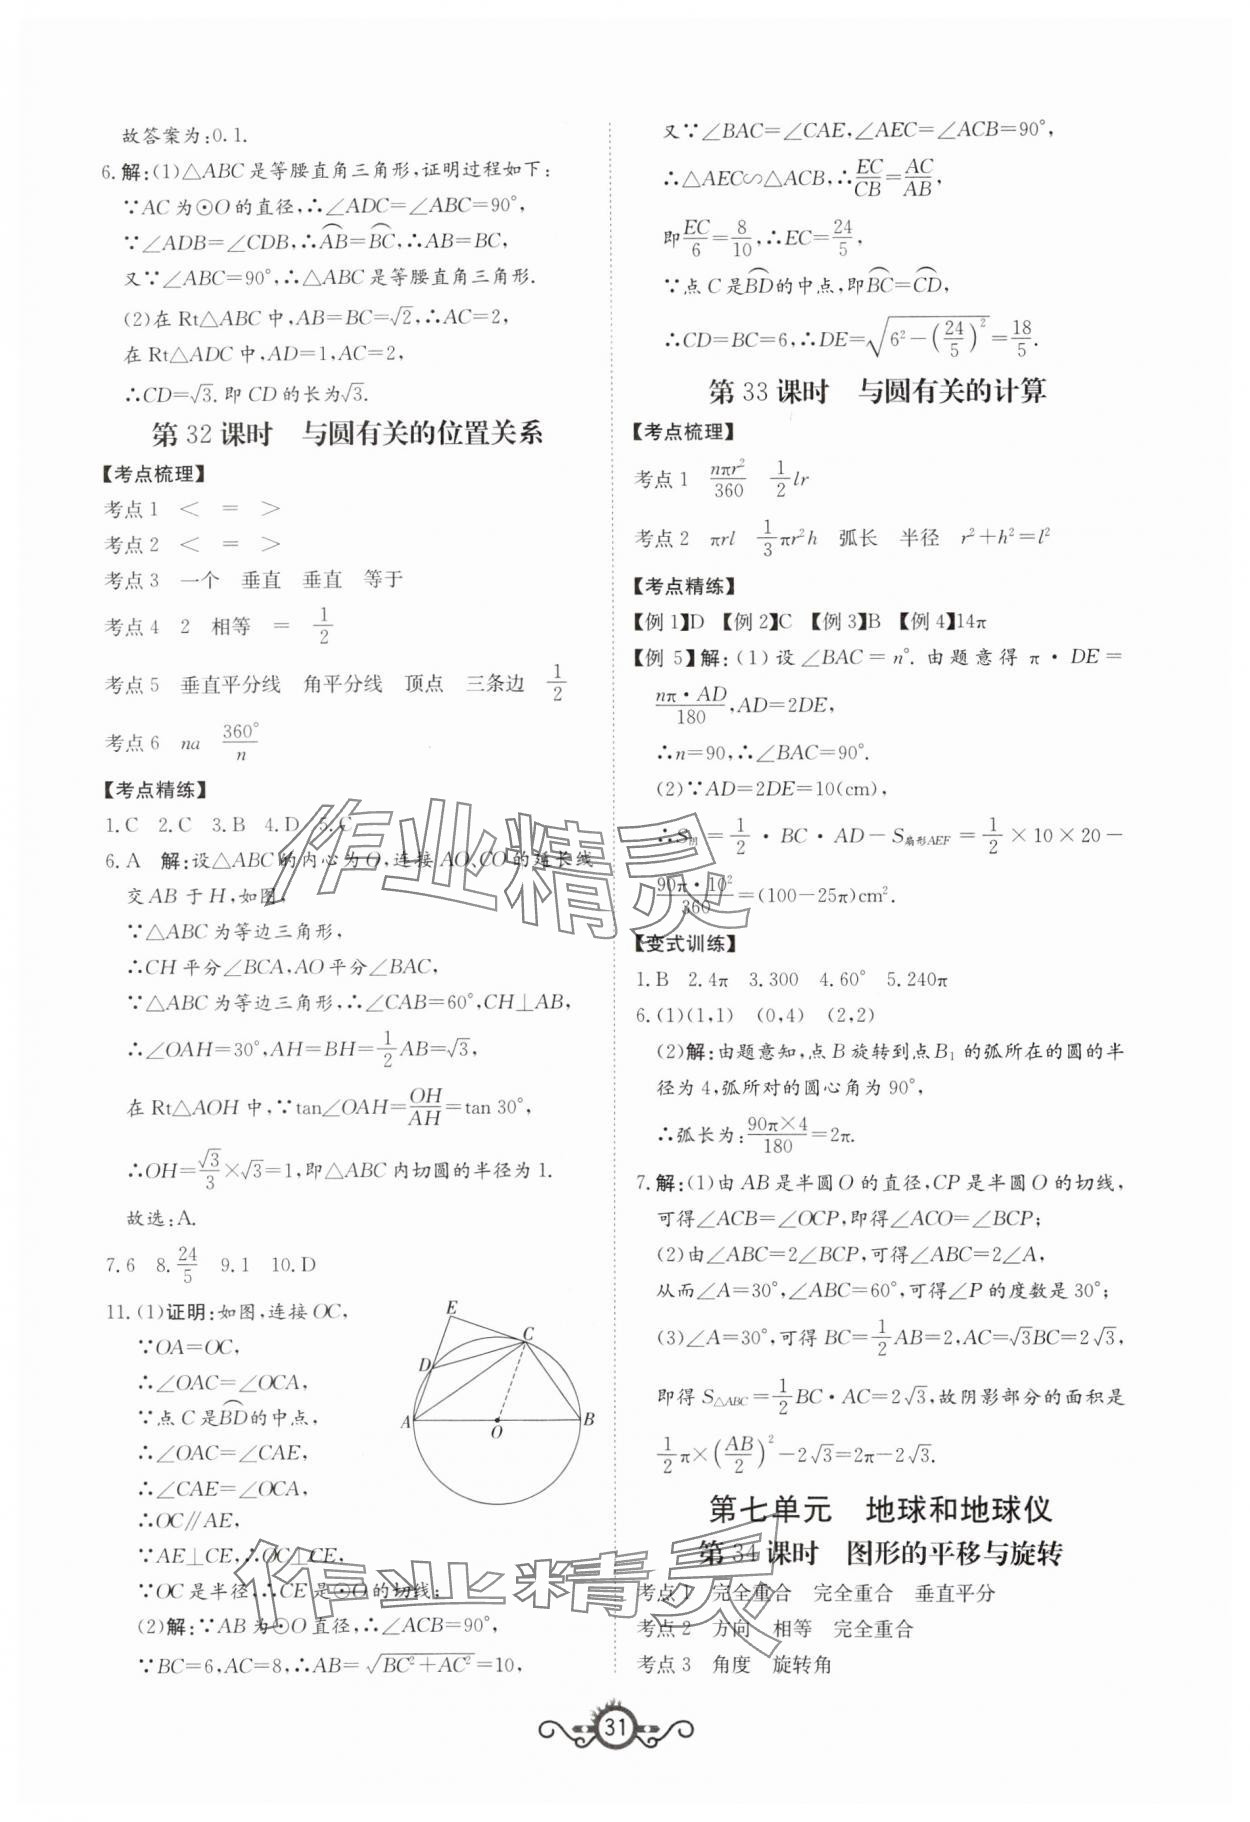 故答案为:0.1.
6.解:(1)△ABC是等腰直角三角形,证明过程如下:
∵AC为⊙O的直径,∴∠ADC=∠ABC=90°,
∵∠ADB=∠CDB,∴AB⌒=BC⌒,∴AB=BC,
又∵∠ABC=90°,∴△ABC是等腰直角三角形.
(2)在Rt△ABC中,AB=BC=√2,∴AC=2,
在Rt△ADC中,AD=1,AC=2,
∴CD=√3.即CD的长为√3.
第32课时 与圆有关的位置关系
【考点梳理】
考点1 < = >
考点2 < = >
考点3 一个 垂直 垂直 等于
考点4 2 相等 = 1/2
考点5 垂直平分线 角平分线 顶点 三条边 1/2
考点6 na 360°/n
【考点精练】
1.C 2.C 3.B 4.D 5.C
6.A 解:设△ABC的内心为O,连接AO、CO的延长线
交AB于H,如图,
∵△ABC为等边三角形,
∴CH平分∠BCA,AO平分∠BAC,
∵△ABC为等边三角形,∴∠CAB=60°,CH⊥AB,
∴∠OAH=30°,AH=BH=1/2AB=√3,
在Rt△AOH中,∵tan∠OAH=OH/AH=tan 30°,
∴OH=√3/3×√3=1,即△ABC内切圆的半径为1.
故选:A.
7.6 8.24/5 9.1 10.D
11.(1)证明:如图,连接OC,
∵OA=OC,
∴∠OAC=∠OCA,
∵点C是BD⌒的中点,
∴∠OAC=∠CAE,
∴∠CAE=∠OCA,
∴OC∥AE,
∵AE⊥CE,∴OC⊥CE,
∵OC是半径,∴CE是⊙O的切线;
(2)解:∵AB为⊙O直径,∴∠ACB=90°,
∵BC=6,AC=8,∴AB=√(BC²+AC²)=10,
E
C
D
A
O
B
又∵∠BAC=∠CAE,∠AEC=∠ACB=90°,
∴△AEC∽△ACB,∴EC/CB=AC/AB,
即EC/6=8/10,∴EC=24/5,
∵点C是BD⌒的中点,即BC⌒=CD⌒,
∴CD=BC=6,∴DE=√(6²-(24/5)²)=18/5.
第33课时 与圆有关的计算
【考点梳理】
考点1 nπr²/360 1/2lr
考点2 πrl 1/3πr²h 弧长 半径 r²+h²=l²
【考点精练】
【例1】D 【例2】C 【例3】B 【例4】14π
【例5】解:(1)设∠BAC=n°.由题意得π·DE=
nπ·AD/180,AD=2DE,
∴n=90,∴∠BAC=90°.
(2)∵AD=2DE=10(cm),
∴S阴=1/2·BC·AD-S扇形AEF=1/2×10×20-
90π·10²/360=(100-25π)cm².
【变式训练】
1.B 2.4π 3.300 4.60° 5.240π
6.(1)(1,1) (0,4) (2,2)
(2)解:由题意知,点B旋转到点B₁的弧所在的圆的半
径为4,弧所对的圆心角为90°,
∴弧长为:90π×4/180=2π.
7.解:(1)由AB是半圆O的直径,CP是半圆O的切线,
可得∠ACB=∠OCP,即得∠ACO=∠BCP;
(2)由∠ABC=2∠BCP,可得∠ABC=2∠A,
从而∠A=30°,∠ABC=60°,可得∠P的度数是30°;
(3)∠A=30°,可得BC=1/2AB=2,AC=√3BC=2√3,
即得S△ABC=1/2BC·AC=2√3,故阴影部分的面积是
1/2π×(AB/2)²-2√3=2π-2√3.
第七单元 地球和地球仪
第34课时 图形的平移与旋转
考点1 完全重合 完全重合 垂直平分
考点2 方向 相等 完全重合
考点3 角度 旋转角
31
作业精灵
作业精灵